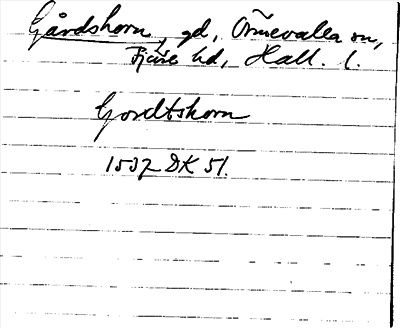 Gårdshorn, gd, Ölmevalla sn,
Fjäre hd, Hall. l.
Gordtshorn
1537 DK 51.